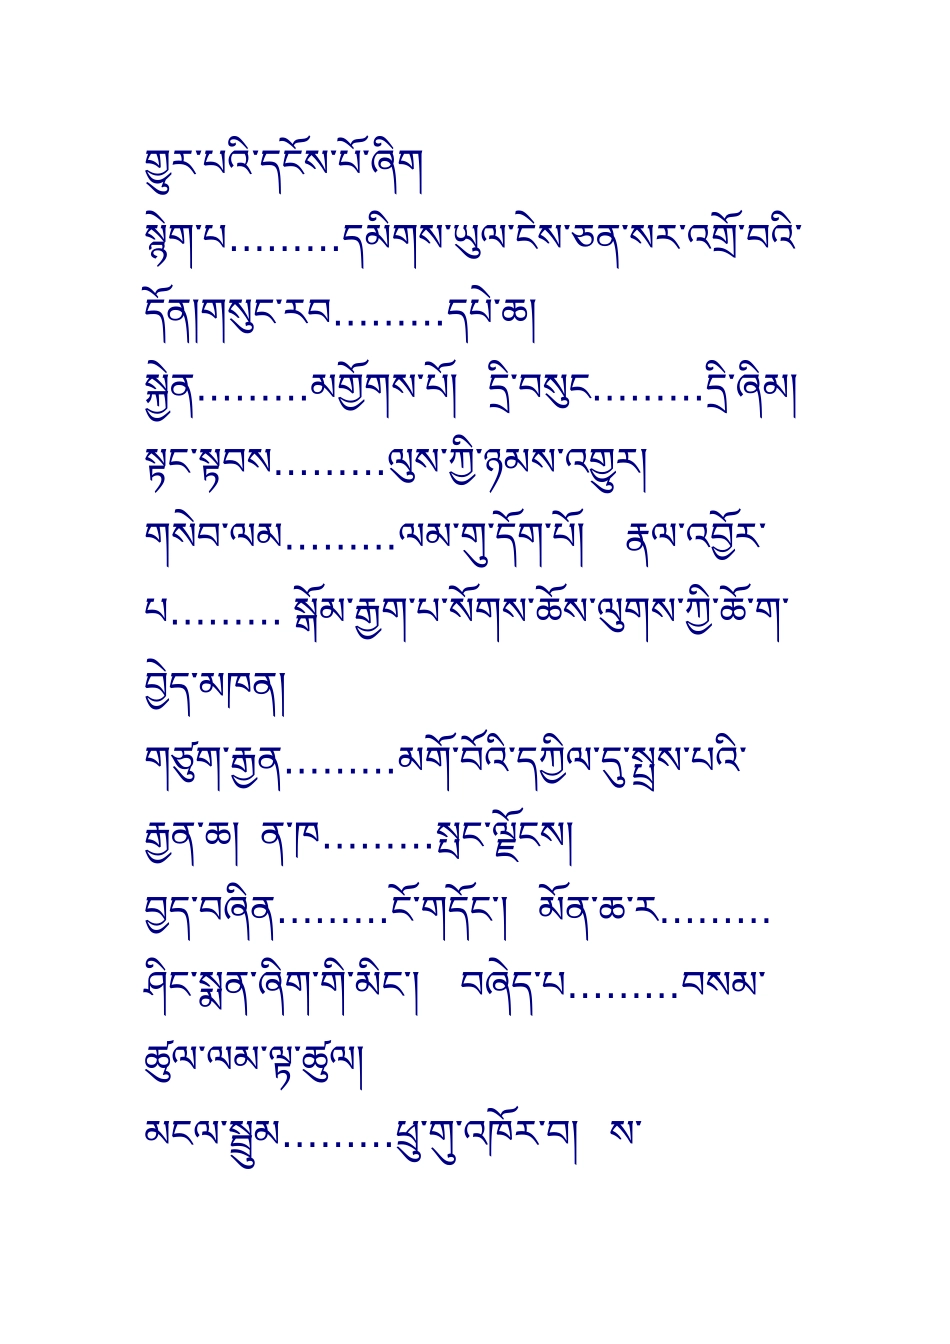 གྱུར་པའི་དངོས་པོ་ཞིག
སྙེག་པ………དམིགས་ཡུལ་ངེས་ཅན་སར་འགྲོ་བའི་
དོན།གསུང་རབ………དཔེ་ཆ།
སྐྱེན………མགྱོགས་པོ། དྲི་བསུང………དྲི་ཞིམ།
སྟང་སྟབས………ལུས་ཀྱི་ཉམས་འགྱུར།
གསེབ་ལམ………ལམ་གུ་དོག་པོ། རྣལ་འབྱོར་
པ……… སྒོམ་རྒྱག་པ་སོགས་ཆོས་ལུགས་ཀྱི་ཆོ་ག་
བྱེད་མཁན།
གཙུག་རྒྱན………མགོ་བོའི་དཀྱིལ་དུ་སྤྲས་པའི་
རྒྱན་ཆ། ན་ཁ………སྤང་ལྗོངས།
བྱད་བཞིན………ངོ་གདོང་། མོན་ཆ་ར………
ཤིང་སྨན་ཞིག་གི་མིང་། བཞེད་པ………བསམ་
ཚུལ་ལམ་ལྟ་ཚུལ།
མངལ་སྦྲུམ………ཕྲུ་གུ་འཁོར་བ། ས་